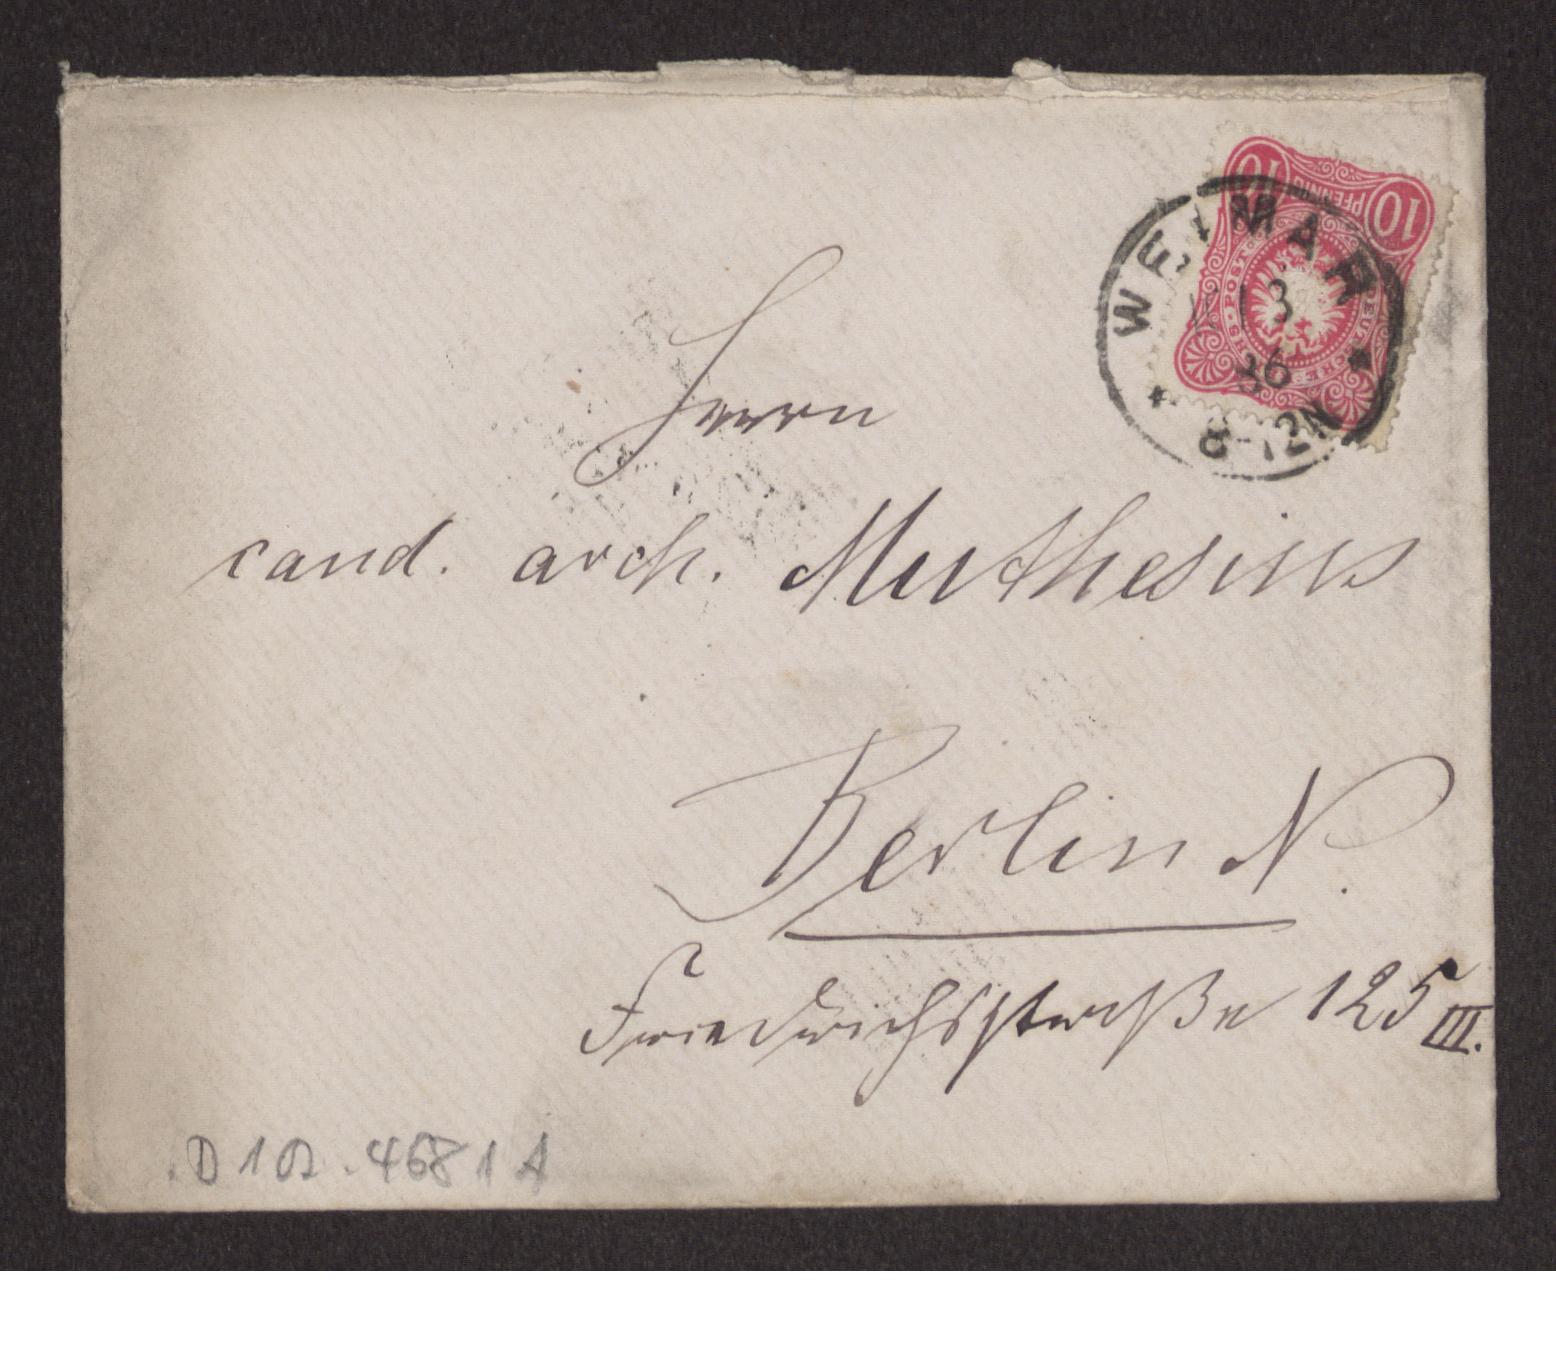 10 PFENNIG 10
DEUTSCHE REICHS-POST
WEIMAR
13
86
8-12N
Herrn
cand. arch. Muthesius
Berlin N.
Friedrichsstraße 125 III.
D 102-4681 A